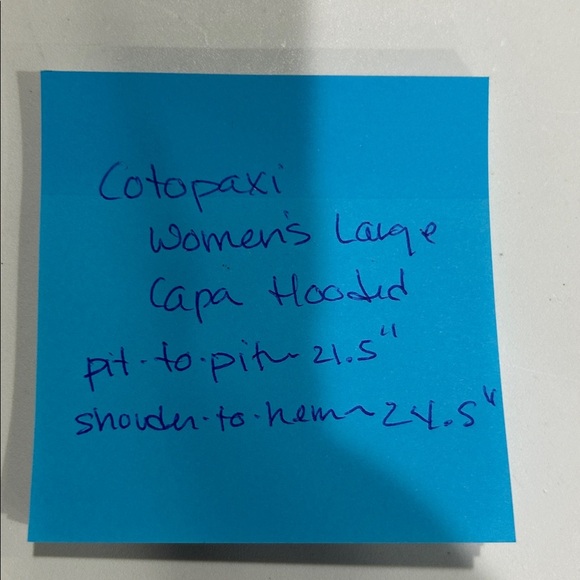 Cotopaxi
Women's Large
Capa Hooded
pit-to-pit ~ 21.5"
shoulder-to-hem ~ 24.5"